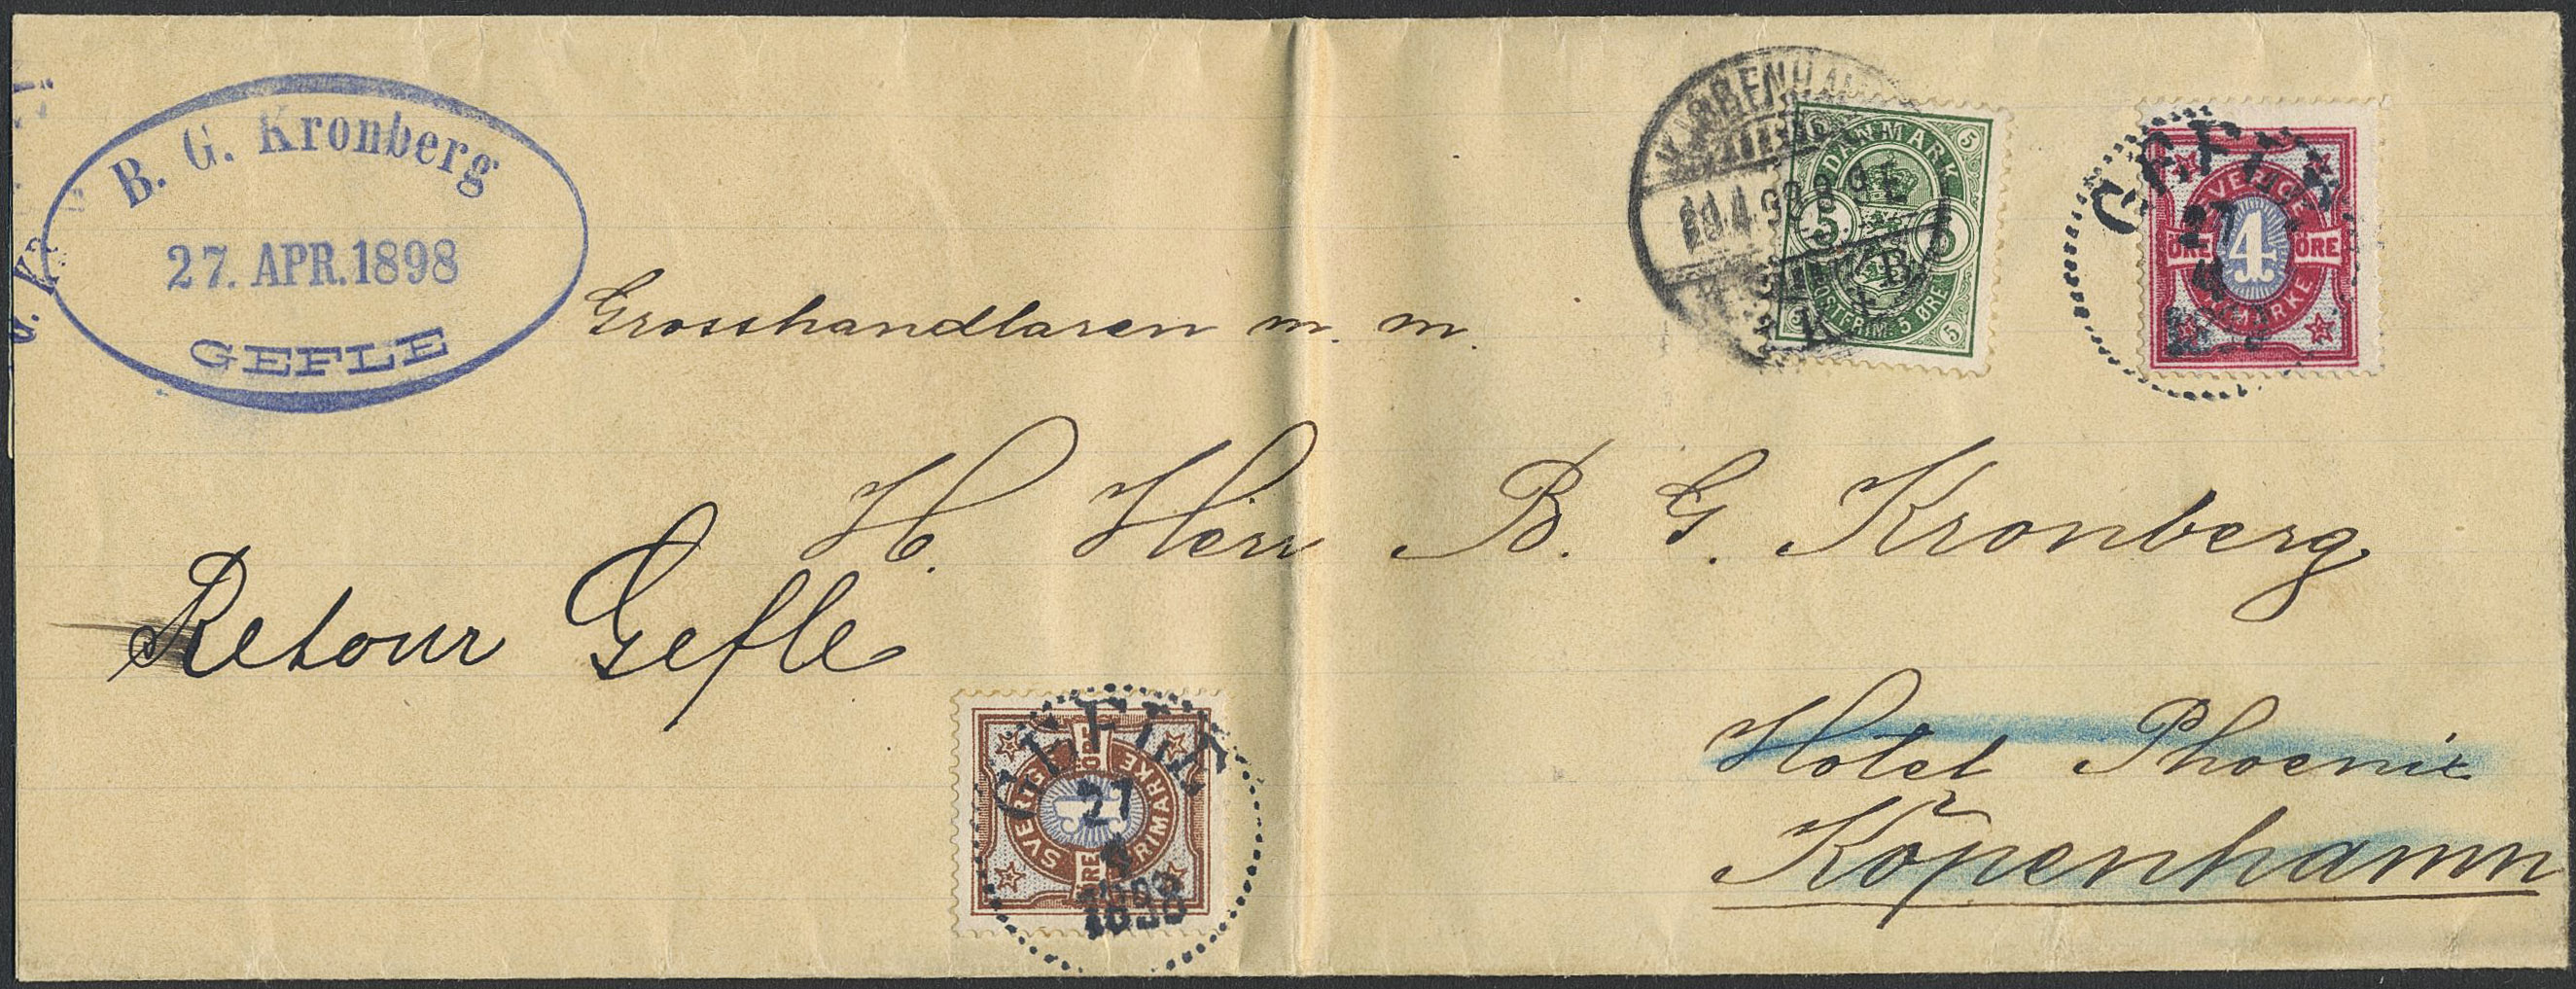 B. G. Kronberg
27. APR. 1898
GEFLE
Grosshandlaren m. m.
H. Herr B. G. Kronberg
Retour Gefle
Hotel Phoenix
Köpenhamn
KJØBENHAVN
K
DANMARK
5 5
5 5
POSTFRIM. 5 ØRE
5 5
GEFLE
27
4
1898
SVERIGE
ÖRE 4 ÖRE
FRIMÄRKE
GEFLE
27
4
1898
SVERIGE
ÖRE 1 ÖRE
FRIMÄRKE